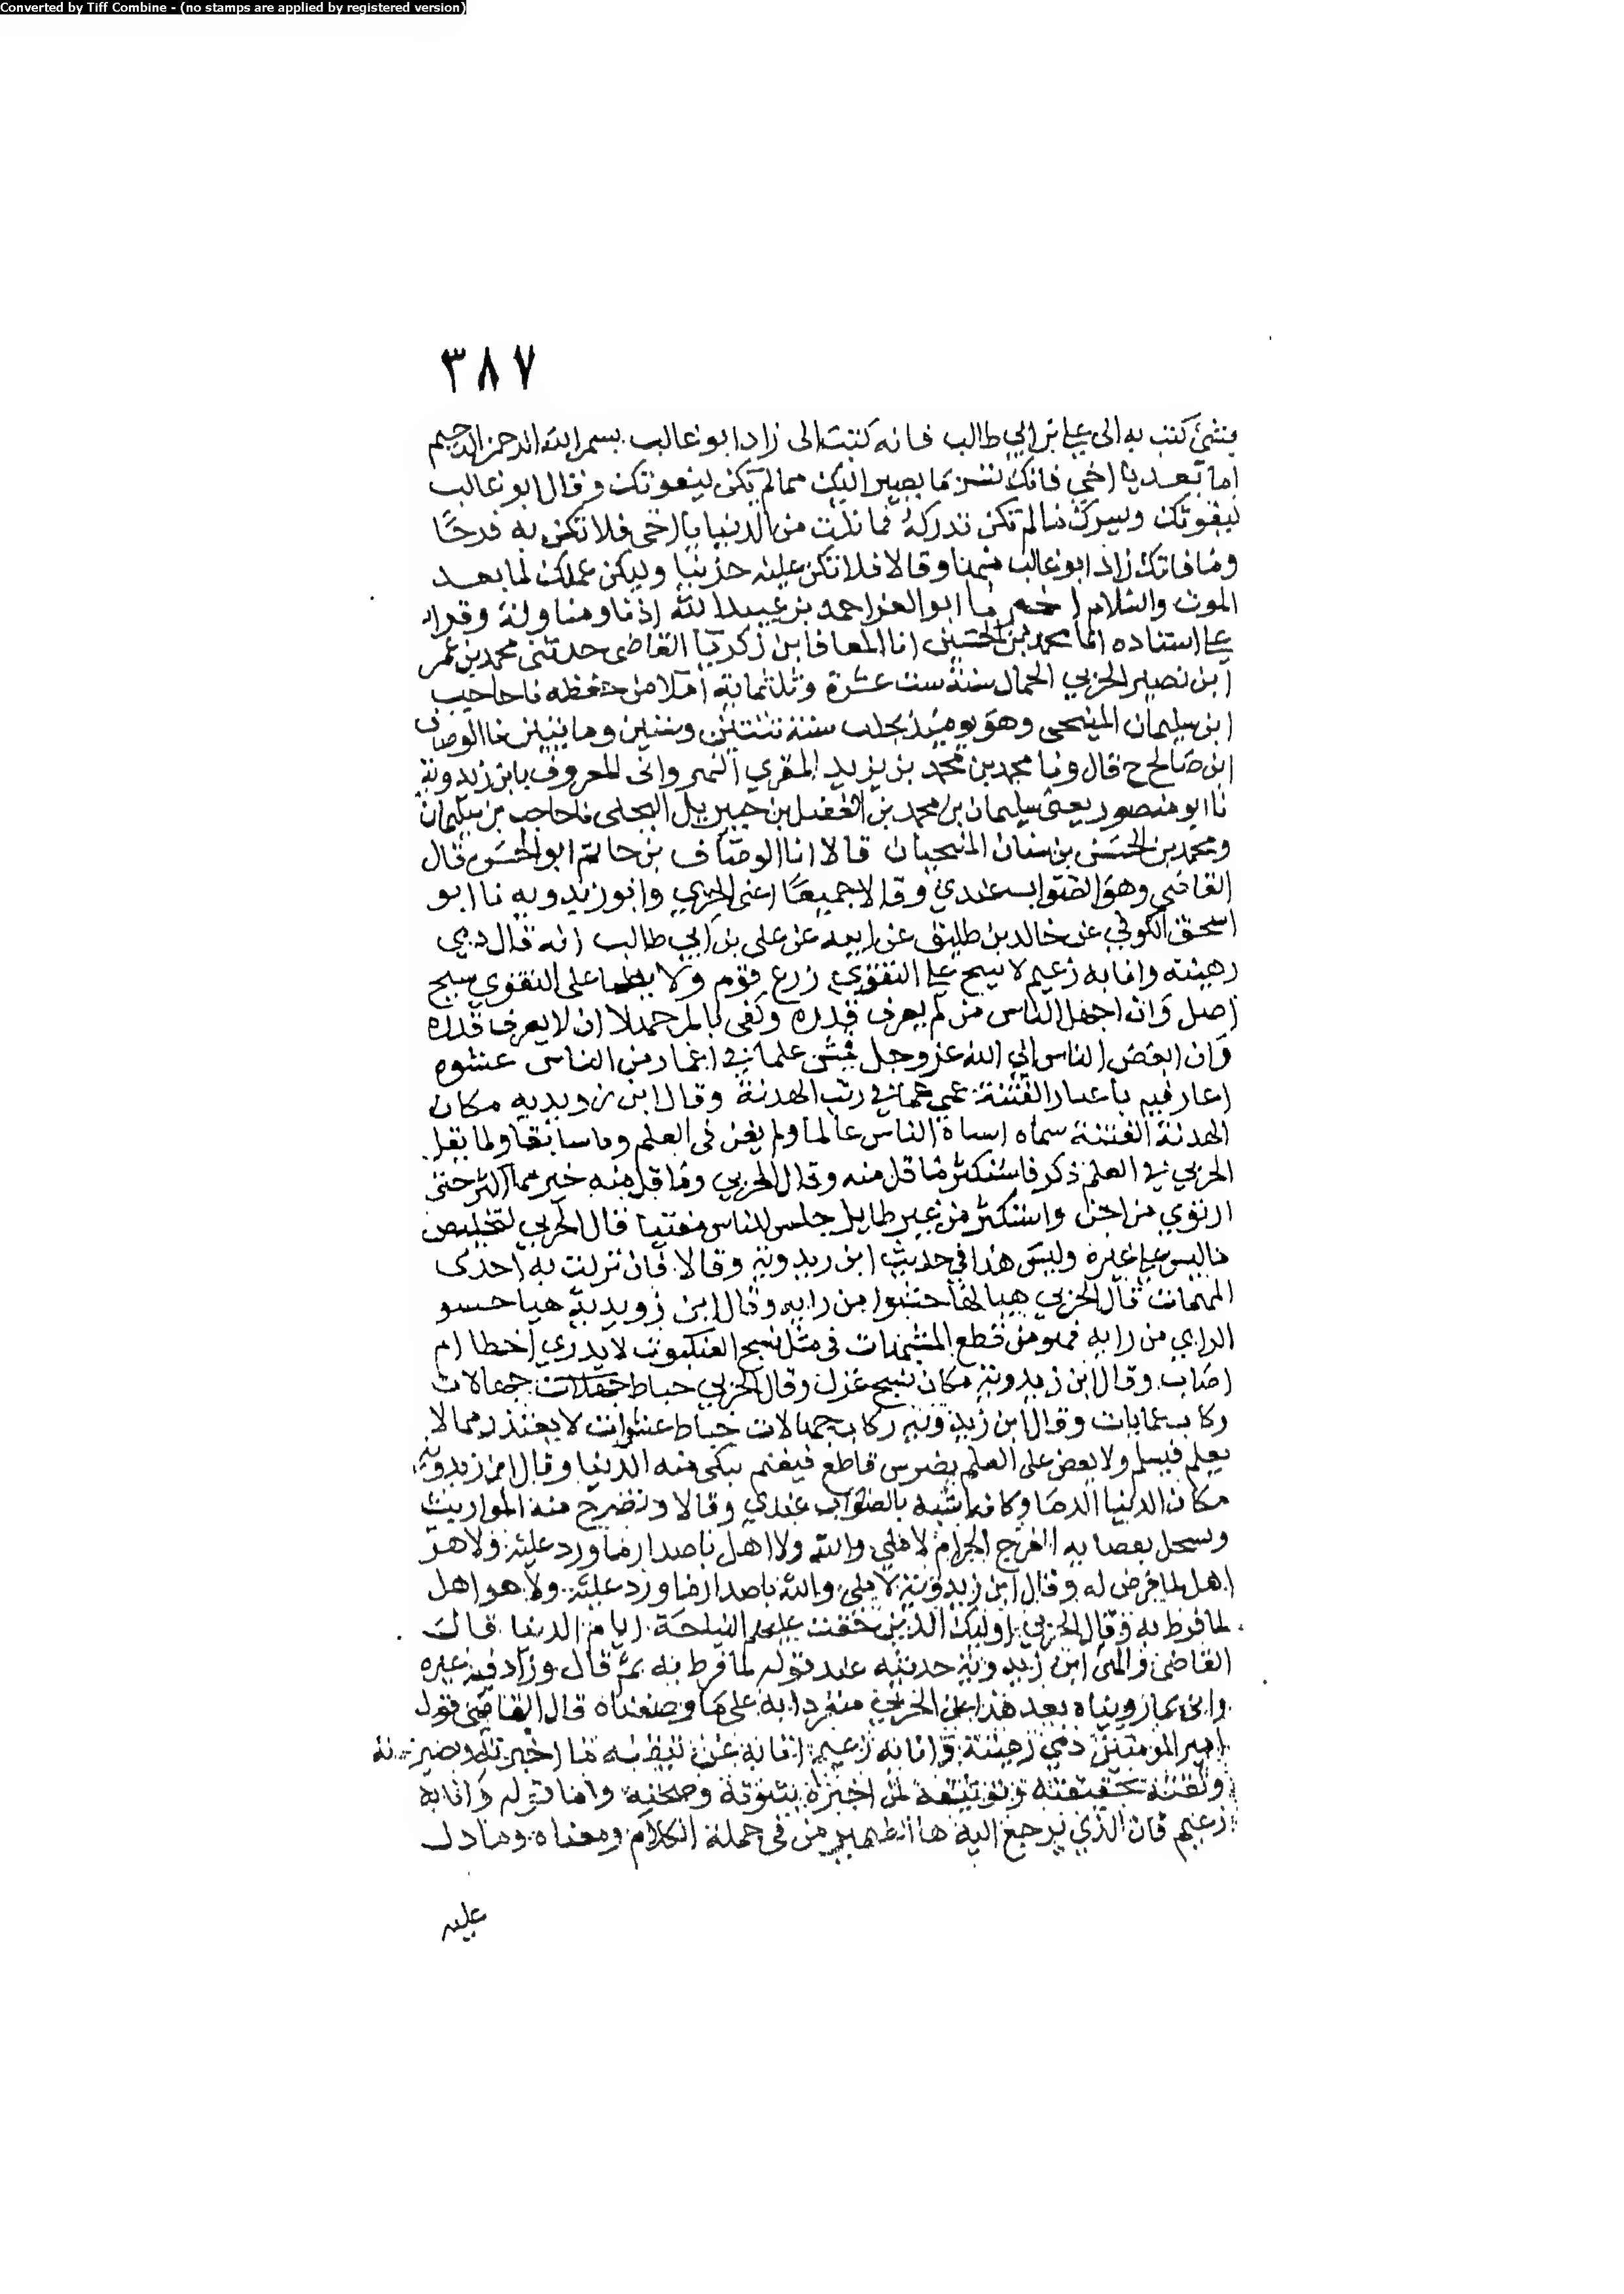 Converted by Tiff Combine - (no stamps are applied by registered version)
٣٨٧
بشئ كتب به الى علي بن ابي طالب فانه كتب الى زاد ابو غالب بسم الله الرحمن الرحيم
اما بعد يا اخي فانك تسر بما يصير اليك مما لم يكن ليفوتك وقال ابو غالب
ليفوتك ويسرك ما لم تكن تدركه فما نلت من الدنيا يا اخي فلا تكن به فرحا
وما فاتك زاد ابو غالب منها وقالا فلا تكن عليه حزينا وليكن عملك لما بعد
الموت والسلام اخبرنا ابو العز احمد بن عبيد الله اذنا ومناولة وقرا
علي اسناده انا محمد بن الحسين انا المعافا بن زكريا القاضي حدثني محمد بن عمر
ابن نصير الحربي الحمال سنة ست عشرة وثلثماية املا من حفظه نا حاجب
ابن سليمان المنبجي وهو يوميذ بحلب سنة ثنتين وستين وماتين نا الوصاف
ابن صالح ح قال ونا محمد بن محمد بن يزيد المقري النهرواني المعروف بابن زيدوية
نا ابو منصور يعني سليمان بن محمد بن الفضل بن جبريل البجلي نا حاجب بن سليمان
ومحمد بن الحسن بن سنان المنبجيان قالا انا الوصاف بن حاتم ابو الحسن قال
القاضي وهو الصواب عندي وقالا جميعا اعني الحربي وابن زيدويه نا ابو
اسحق الكوفي عن خالد بن طليق عن ابيه عن علي بن ابي طالب انه قال ذمتي
رهينة وانا به زعيم لا يهيج على التقوى زرع قوم ولا يظما على التقوى سنخ
اصل وان اجهل الناس من لم يعرف قدره وكفى بالمر جهلا ان لا يعرف قدره
وان ابغض الناس الي الله عز وجل قمش علما في اغمار من الناس عشوه
اغار فيه باغبار الفتنة عمي عما في ريب الهدنة وقال ابن زيدويه مكان
الهدنة الفتنة سماه اسباه الناس عالما ولم يغن في العلم يوما سالما ولم يقل
الحربي في العلم ذكر فاستكثر ما قل منه وقال الحربي وما قل منه خير مما اكثر حتى
ارتوي من اجن واستكثر من غير طايل جلس للناس مفتيا قال الحربي لتخليص
ما التبس على غيره وليس هذا في حديث ابن زيدوية وقالا فان نزلت به احدى
المهمات قال الحربي هيا لها حشوا من رايه وقال ابن زيدوية هيا حسو
الراي من رايه فهو من قطع المشبهات في مثل نسج العنكبوت لا يدري اخطا ام
اصاب وقال ابن زيدوية مكان نسج غزل وقال الحربي خباط جهالات
ركاب عمايات وقال ابن زيدويه ركاب جهالات خباط عشوات لا يعتذر مما لا
يعلم فيسلم ولا يعض على العلم بضرس قاطع فيغنم تبكي منه الدنيا وقال ابن زيدوية
مكان الدنيا الدما وكانه اشبه بالصواب عندي وقالا وتصرخ منه المواريث
ويستحل بقضايه الفرج الحرام لا ملي والله ولا اهل باصدار ما ورد عليه ولا هو
اهل لما قرض له وقال ابن زيدوية لا ملي والله باصدار ما ورد عليه ولا هو اهل
لما فرط به وقال الحربي اوليك الذين حقت عليهم النياحة ايام الدنيا قال
القاضي والمي ابن زيدوية حديثه عند قوله لما فرط به ثم قال وزاد فيه غيره
واتى بما رويناه بعد هذا عن الحربي منفردا به على ما وصفناه قال القاضي قول
امير المومنين ذمتي رهينة وانا به زعيم
زعيم فان الذي يرجع اليه ها الضمير من في جملة الكلام ومعناه وما دل
عليه